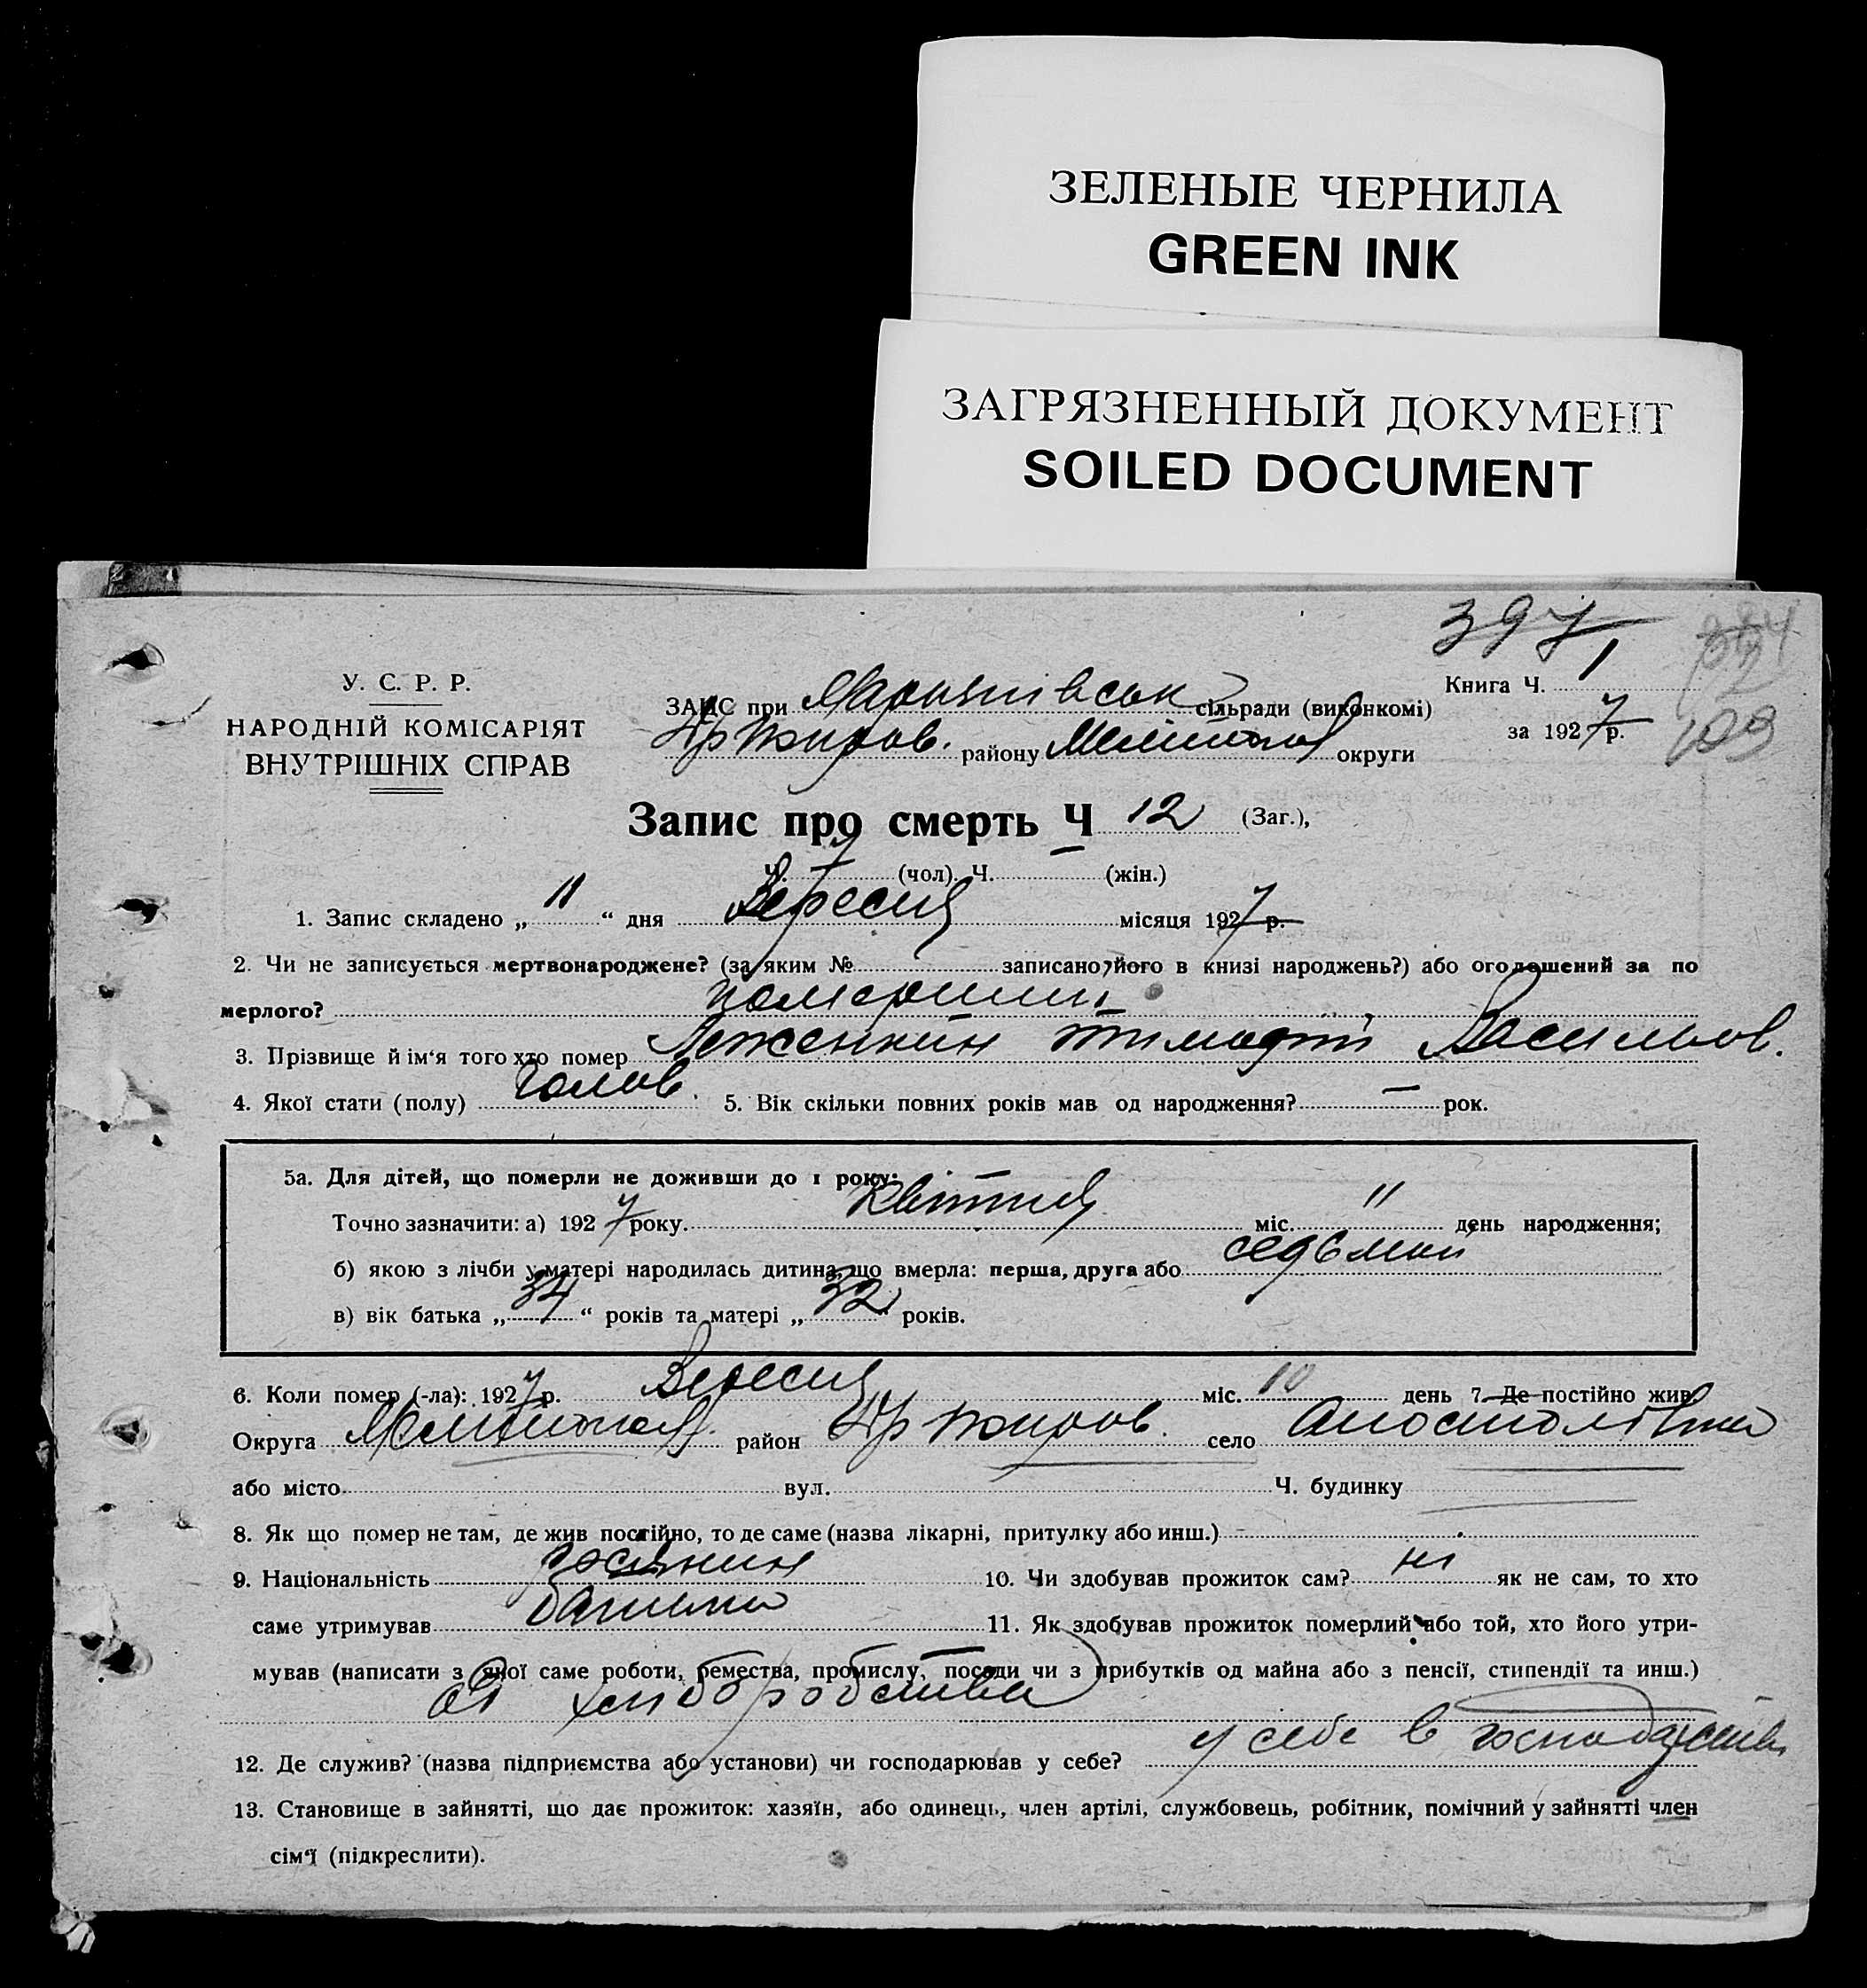 ЗЕЛЕНЫЕ ЧЕРНИЛА
GREEN INK
ЗАГРЯЗНЕННЫЙ ДОКУМЕНТ
SOILED DOCUMENT
397
У. С. Р. Р.
НАРОДНІЙ КОМІСАРІЯТ
ВНУТРІШНІХ СПРАВ
Книга Ч. 1
за 1927 р.
109
ЗАГС при сільради (виконкомі)
району Мелітоп округи
Запис про смерть Ч 12 (Заг.),
Ч. 7 (чол). Ч. — (жін.)
1. Запис складено „ 11 “ дня Вересня місяця 1927 р.
2. Чи не записується мертвонароджене? (за яким № записано його в книзі народжень?) або оголошений за по
мерлого? померший
3. Прізвище й ім‘я того хто помер Тимофій Васильов.
4. Якої стати (полу) чолов. 5. Вік скільки повних років мав од народження? — рок.
5а. Для дітей, що померли не доживши до 1 року:
Точно зазначити: а) 1927 року. Квітня міс. 11 день народження;
б) якою з лічби у матері народилась дитина, що вмерла: перша, друга або седьмий
в) вік батька „ 34 “ років та матері „ 32 “ років.
6. Коли помер (-ла): 1927 р. Вересня міс. 10 день 7. Де постійно жив
Округа Мелітопол. район село Апостолівка
або місто вул. Ч. будинку
8. Як що помер не там, де жив постійно, то де саме (назва лікарні, притулку або инш.)
9. Національність росянин 10. Чи здобував прожиток сам? ні як не сам, то хто
саме утримував батько 11. Як здобував прожиток померлий або той, хто його утри-
мував (написати з якої саме роботи, ремества, промислу, посади чи з прибутків од майна або з пенсії, стипендії та инш.)
від хліборобства
12. Де служив? (назва підприємства або установи) чи господарював у себе? у себе в господарстві
13. Становище в зайнятті, що дає прожиток: хазяїн, або одинець, член артілі, службовець, робітник, помічний у зайнятті член
сім‘ї (підкреслити).